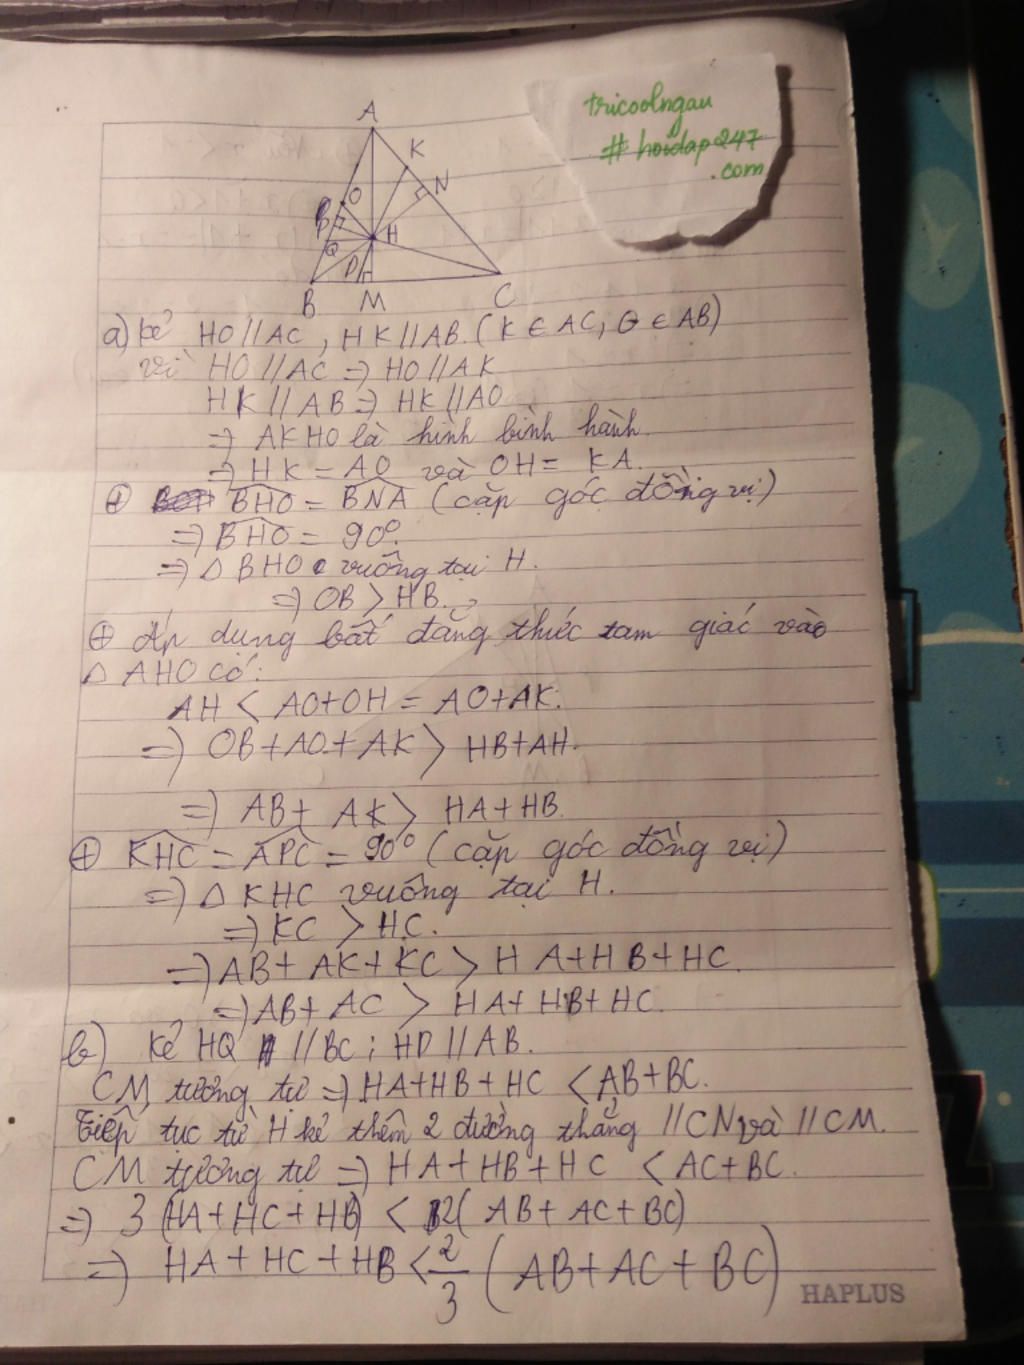 tricoolngau
# hoidap247
.com
A
K
N
O
P
H
Q
D
B
M
C
a) Kẻ HO // AC, HK // AB. (K ∈ AC, O ∈ AB)
vì HO // AC => HO // AK
HK // AB => HK // AO
=> AKHO là hình bình hành
=> HK = AO và OH = KA.
+ BHO = BNA (cặp góc đồng vị)
=> BHO = 90°
=> Δ BHO vuông tại H.
=> OB > HB.
+ Áp dụng bất đẳng thức tam giác vào
Δ AHO có:
AH < AO+OH = AO+AK.
=> OB+AO+AK > HB+AH.
=> AB+ AK > HA+HB.
+ KHC = APC = 90° (cặp góc đồng vị)
=> Δ KHC vuông tại H.
=> KC > HC.
=> AB+ AK+KC > HA+HB+HC.
=> AB+ AC > HA+ HB+ HC.
b) Kẻ HQ // BC ; HD // AB.
CM tương tự => HA+HB+HC < AB+BC.
Tiếp tục từ H kẻ thêm 2 đường thẳng // CN và // CM.
CM tương tự => HA+HB+HC < AC+BC.
=> 3 (HA+HC+HB) < 2( AB+ AC+BC)
=> HA+HC+HB < 2/3 ( AB+AC+BC)
HAPLUS